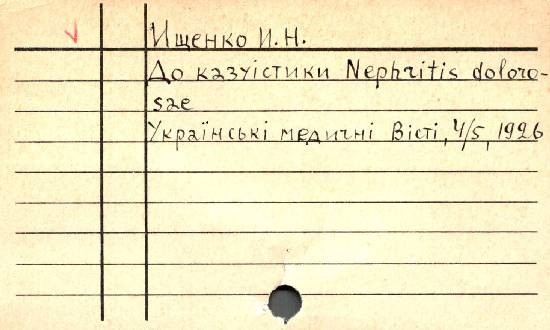 Ищенко И. Н.
До казуістики Nephritis doloro-
sae
Українські медичні Вісті, 4/5, 1926